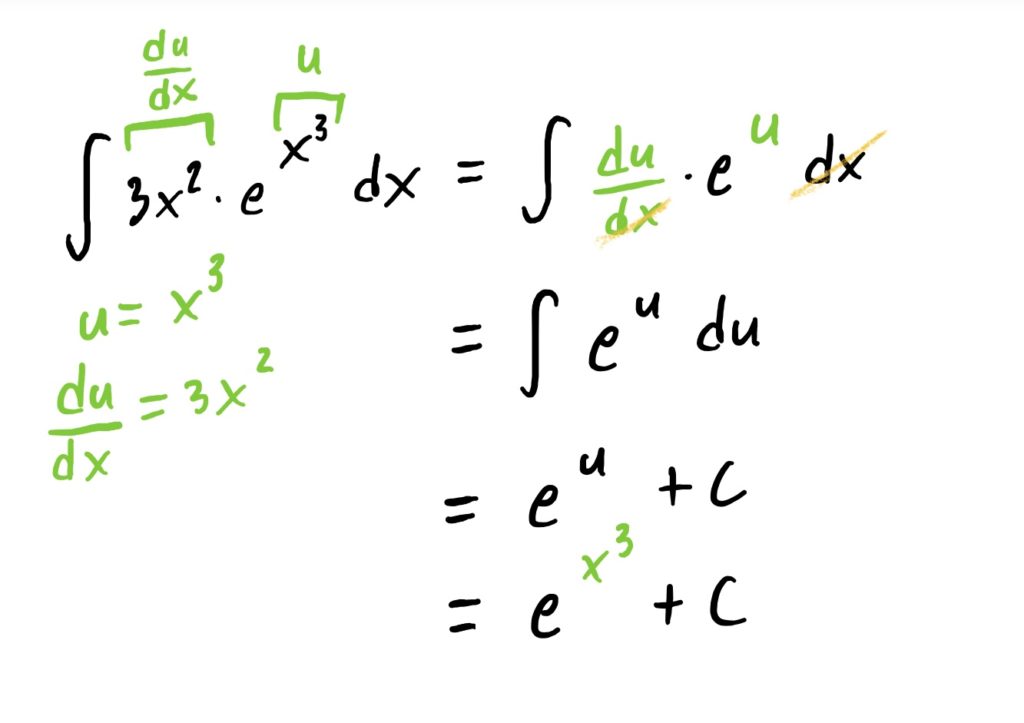 du/dx u
∫ 3x² · e^x³ dx = ∫ du/dx · e^u dx
u = x³
= ∫ e^u du
du/dx = 3x²
= e^u + C
= e^x³ + C